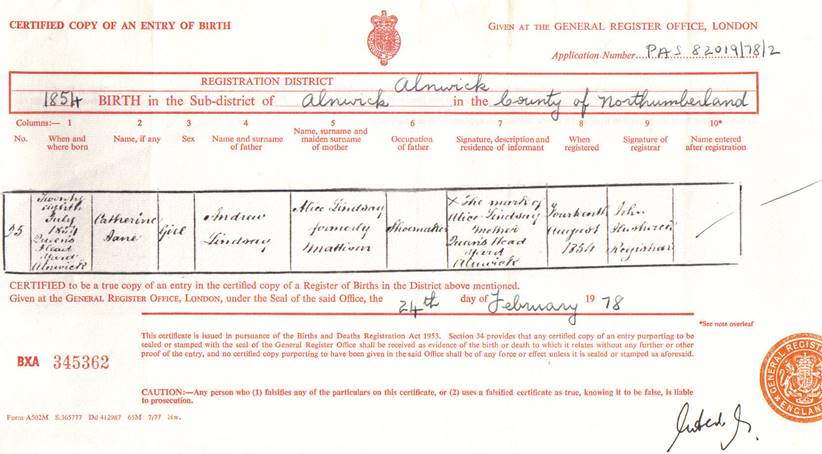 CERTIFIED COPY OF AN ENTRY OF BIRTH
GIVEN AT THE GENERAL REGISTER OFFICE, LONDON
Application Number PAS 82019/78/2
REGISTRATION DISTRICT Alnwick
1854 BIRTH in the Sub-district of Alnwick in the County of Northumberland
Columns:— 1 2 3 4 5 6 7 8 9 10*
No. When and where born Name, if any Sex Name and surname of father Name, surname and maiden surname of mother Occupation of father Signature, description and residence of informant When registered Signature of registrar Name entered after registration
25 Twenty eighth July 1854 Queen's Head Yard Alnwick Catherine Jane Girl Andrew Lindsay Alice Lindsay formerly Mattison Shoemaker X The mark of Alice Lindsay Mother Queen's Head Yard Alnwick Fourteenth August 1854 John Registrar
CERTIFIED to be a true copy of an entry in the certified copy of a Register of Births in the District above mentioned.
Given at the GENERAL REGISTER OFFICE, LONDON, under the Seal of the said Office, the 24th day of February 1978
*See note overleaf
This certificate is issued in pursuance of the Births and Deaths Registration Act 1953. Section 34 provides that any certified copy of an entry purporting to be
sealed or stamped with the seal of the General Register Office shall be received as evidence of the birth or death to which it relates without any further or other
proof of the entry, and no certified copy purporting to have been given in the said Office shall be of any force or effect unless it is sealed or stamped as aforesaid.
BXA 345362
CAUTION:—Any person who (1) falsifies any of the particulars on this certificate, or (2) uses a falsified certificate as true, knowing it to be false, is liable
to prosecution.
Form A502M S.365777 Dd 412987 65M 7/77 Hw.
GENERAL REGISTER
ENGLAND